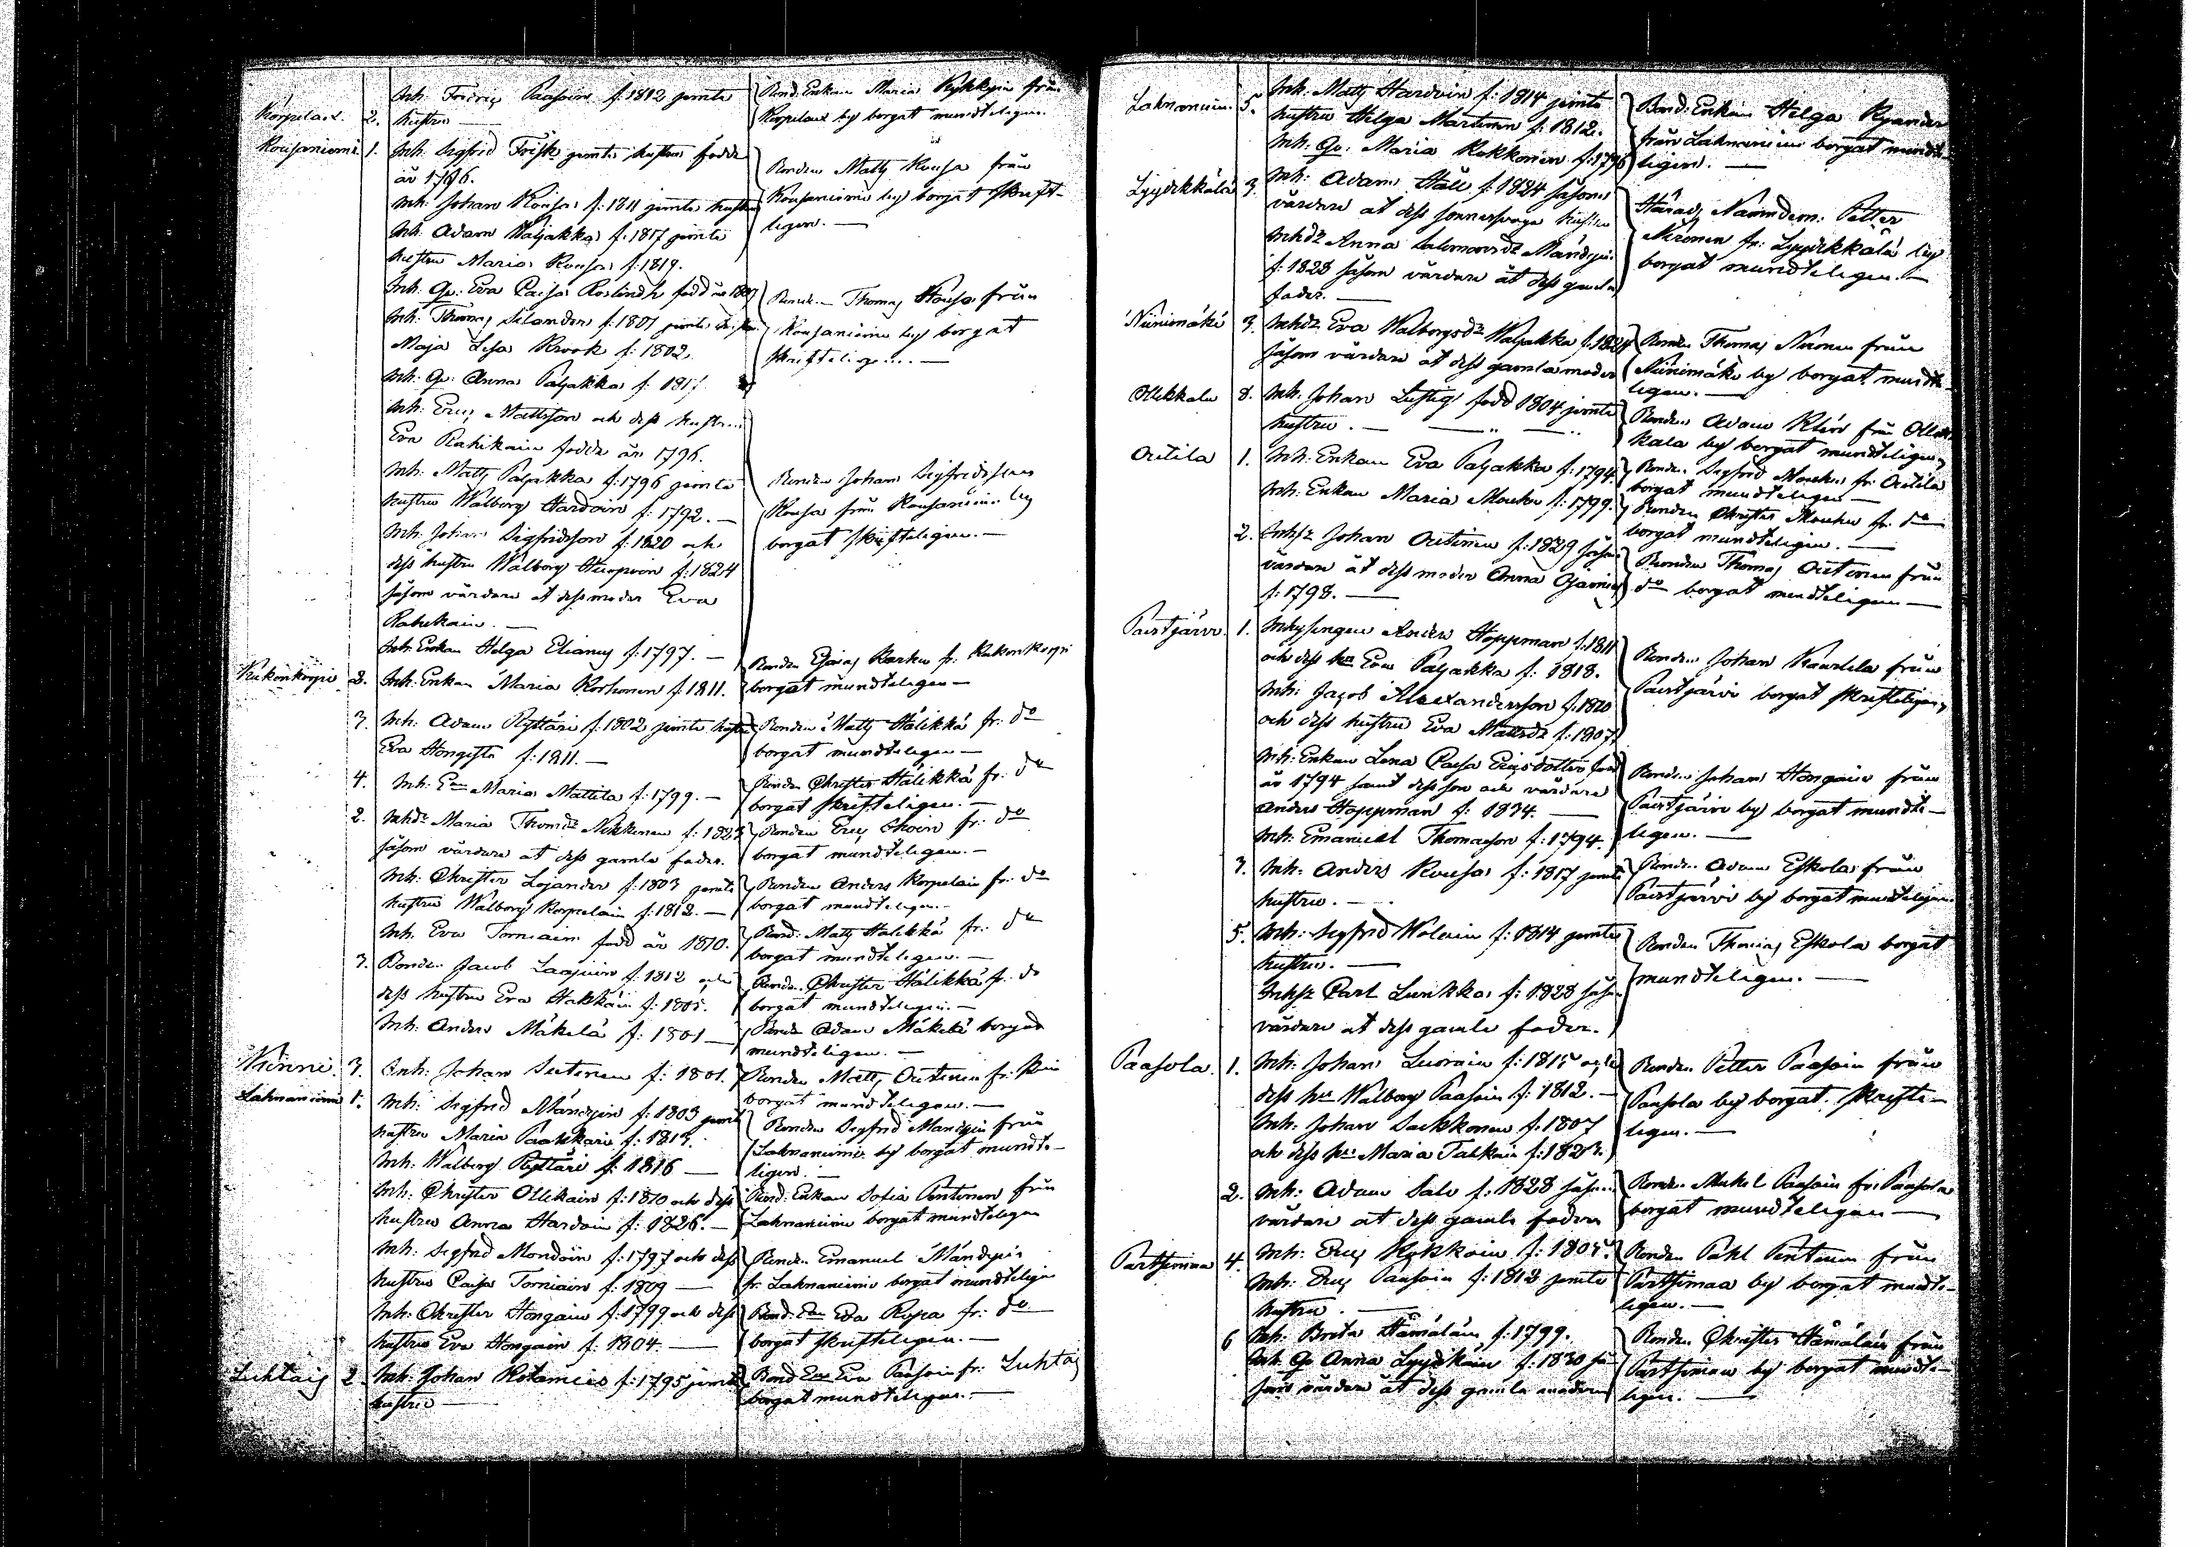 Inh: Fredric Paasoin f: 1812 jemte
Korpelax. 2. hustru —
Bond: Enkan Maria Kykkyin från
Korpelax by borgat mundteligen.
Kousaniemi 1. Inh: Sigfrid Frisk jemte hustru födde
år 1786.
Inh: Johan Kousa f: 1811 jemte hustru
Inh: Adam Waljakka f: 1817 jemte
hustru Maria Kousa f: 1819.
Bonden Matts Kousa från
Kousaniemi by borgat skrift-
ligen. —
Inh: Qv: Eva Caisa född år
Inh: Thomas Selander f: 1801 jemte
Maja Lisa Krook f: 1802.
Inh: Qv: Anna Paljakka f: 1817.
Bonden Thomas Kousa från
Kousaniemi by borgat
skrifteligen. —
Inh: Eric Mattsson och dess hustru
Eva Rahikain födde år 1796.
Inh: Matts Paljakka f: 1796 jemte
hustru Walborg Hardoin f: 1792. —
Inh: Johan Sigfridsson f: 1820 och
dess hustru Walborg f: 1824
såsom vårdare åt dess moder Eva
Rahikain. —
Inh: Enkan Helga Elianus f: 1797. —
Bonden Johan Sigfridsson
Kousa från Kousaniemi by
borgat skrifteligen. —
Kukonkorpi 2. Inh: Enkan Maria Korhonen f: 1811.
Bonden Esaias Karhu fr: Kukonkorpi
borgat mundteligen —
3. Inh: Adam Ryttäri f: 1802 jemte hustru
Eva Hongisto f: 1811. —
Bonden Matts Hälikkä fr: do
borgat mundteligen —
4. Inh: Maria Mattila f: 1799. —
Bonden Christer Hälikkä fr: do
borgat skrifteligen. —
2. Inhdr Maria Thomdr Nikkinen f:
såsom vårdare åt dess gamle fader.
Bonden Eric fr: do
borgat mundteligen. —
Inh: Christer Lojander f: 1803 jemte
hustru Walborg Korpelain f: 1812. —
Bonden Anders Korpelain fr: do
borgat mundteligen. —
Inh. Eva Torniain född år 1810.
Bond: Matts Hälikkä fr: do
borgat mundteligen. —
3. Bonden Jacob f: 1812 och
dess hustru Eva Hakkain f: 1805.
Bonden Christer Hälikkä fr. do
borgat mundteligen. —
Inh: Anders Mäkelä f: 1801 —
Bonden Adam Mäkelä borgat
mundteligen. —
3. Inh: Johan Suttinen f: 1801.
Bonden Matts Outinen fr:
borgat mundteligen. —
Lahnaniemi 1. Inh: Sigfrid Mändyin f: 1803 jemte
hustru Maria f: 1813.
Inh: Walborg Ryttäri f: 1816 —
Bonden Sigfrid Mändyin från
Lahnaniemi by borgat mundte-
ligen. —
Inh: Christer Ollikain f: 1810 och dess
hustru Anna Hardoin f: 1826. —
Bond: Enkan Sofia Pentinen från
Lahnaniemi borgat mundteligen
Inh: Sigfrid Mondoin f: 1797 och dess
hustru Caisa Torniain f: 1809 —
Bonden Emanuel Mändyin
fr. Lahnaniemi borgat mundteligen
Inh: Christer Hongain f: 1799 och dess
hustru Eva Hongain f: 1804. —
Bond: Eva fr: do
borgat skrifteligen. —
Luhtais 2. Inh: Johan f: 1795 jemte
hustru —
Bond Eva Paasoin fr: Luhtais
borgat mundteligen. —
Lahnaniemi 5. Inh: Matts Hardoin f: 1814 jemte
hustru Helga Martinen f: 1812.
Inh: Qv: Maria Kokkonen f: 1796
Bond: Enkan Helga Kyander
från Lahnaniemi borgat mundte-
ligen. —
Lyydikkälä 3. Inh: Adam Ståll f: 1824 såsom
vårdare åt dess
Inhdr Anna Salomonsdr Mändyin
f: 1828 såsom vårdare åt dess gamla
fader. —
Härads Nämndem: Petter
Nironen fr: Lyydikkälä by
borgat mundteligen. —
Niinimäki 3. Inhdr Eva Walborgsdr Waljakka f:
såsom vårdare åt dess gamla moder
Bonden Thomas Nironen från
Niinimäki by borgat mundte-
ligen. —
Ollikkala 8. Inh: Johan Lustig född 1804 jemte
hustru. —
Bonden Adam från Ollik-
kala by borgat mundteligen,
Outila 1. Inh: Enkan Eva Paljakka f: 1794.
Bonden Sigfrid Mouhu fr: Outila
borgat mundteligen —
Inh: Enkan Maria Mouhu f: 1799.
Bonden Christer Mouhu fr. do
borgat mundteligen. —
2. Inhsr Johan Outinen f: 1829 såsom
vårdare åt dess moder Anna
f: 1798. —
Bonden Thomas Outinen från
do borgat mundteligen —
Paistjärvi 1. Inhysingen Anders Hoppman f. 1811
och dess hu Eva Paljakka f: 1818.
Inh: Jacob Alexandersson f: 1820
och dess hustru Eva Mattsdr f: 1807.
Bonden Johan från
Paistjärvi borgat skrifteligen,
Inh: Enkan Lena Caisa Ericsdotter född
år 1794 samt dess son och vårdare
Anders Hoppman f: 1834. —
Inh: Emanuel Thomasson f: 1794.
Bonden Johan Hongain från
Paistjärvi by borgat mundte-
ligen. —
3. Inh: Anders Kousa f: 1817 jemte
hustru. —
Bonden Adam Eskola från
Paistjärvi by borgat mundteligen.
5. Inh: Sigfrid f: 1814 jemte
hustru. —
Inhsr Carl f: 1828 såsom
vårdare åt dess gamle fader.
Bonden Thomas Eskola borgat
mundteligen. —
Paasola. 1. Inh: Johan Luoain f: 1815 och
dess hu Walborg Paasoin f: 1812. —
Inh: Johan Sackkonen f. 1807
och dess hu: Maria Talkain f:
Bonden Petter Paasoin från
Paasola by borgat skrifte-
ligen. —
2. Inh: Adam Salo f: 1828 såsom
vårdare åt dess gamle fader
Bonden Mickel Paasoin fr: Paasola
borgat mundteligen —
Partsimaa 4. Inh: Eric f: 1805.
Inh: Eric Paasoin f: 1812 jemte
hustru. —
Bonden Påhl Pentinen från
Partsimaa by borgat mundte-
ligen. —
6 Inh: Brita Hämäläin f: 1799.
Inh. Qv Anna Lyydikäin f: 1830 så-
som vårdare åt dess gamla moder
Bonden Christer Hämäläin från
Partsimaa by borgat mundte-
ligen. —